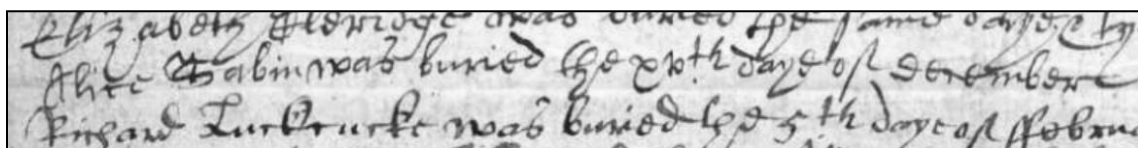 Elizabeth Aldridge was buried the same daye
Alice Gabin was buried the xvth daye of december
Richard Tuckeucke was buried the 5th daye of ffebrua